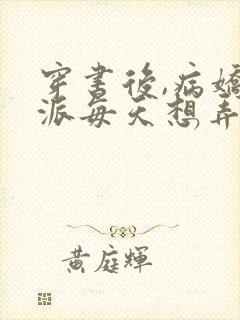 穿書後,病嬌
派每天想弄
黃庭輝